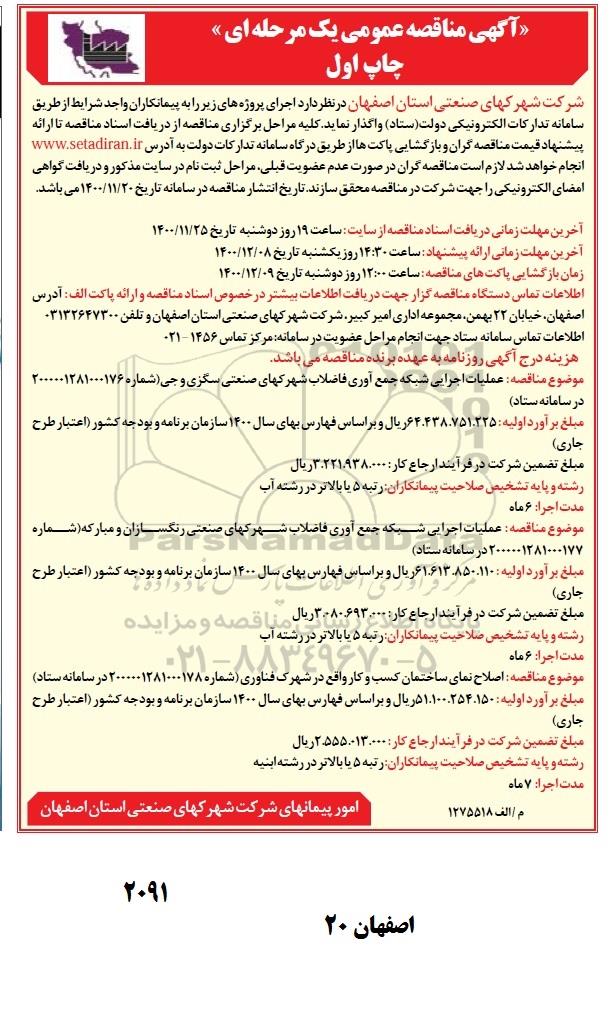 «آگهی مناقصه عمومی یک مرحله ای»
چاپ اول
شرکت شهرکهای صنعتی استان اصفهان در نظر دارد اجرای پروژه های زیر را به پیمانکاران واجد شرایط از طریق
سامانه تدارکات الکترونیکی دولت(ستاد) واگذار نماید.کلیه مراحل برگزاری مناقصه از دریافت اسناد مناقصه تا ارائه
پیشنهاد قیمت مناقصه گران و بازگشایی پاکت ها از طریق درگاه سامانه تدارکات دولت به آدرس www.setadiran.ir
انجام خواهد شد لازم است مناقصه گران در صورت عدم عضویت قبلی، مراحل ثبت نام در سایت مذکور و دریافت گواهی
امضای الکترونیکی را جهت شرکت در مناقصه محقق سازند.تاریخ انتشار مناقصه در سامانه تاریخ ۱۴۰۰/۱۱/۲۰ می باشد.
آخرین مهلت زمانی دریافت اسناد مناقصه از سایت: ساعت ۱۹ روز دوشنبه تاریخ ۱۴۰۰/۱۱/۲۵
آخرین مهلت زمانی ارائه پیشنهاد: ساعت ۱۴:۳۰ روز یکشنبه تاریخ ۱۴۰۰/۱۲/۰۸
زمان بازگشایی پاکت های مناقصه: ساعت ۱۲:۰۰ روز دوشنبه تاریخ ۱۴۰۰/۱۲/۰۹
اطلاعات تماس دستگاه مناقصه گزار جهت دریافت اطلاعات بیشتر در خصوص اسناد مناقصه و ارائه پاکت الف: آدرس
اصفهان، خیابان ۲۲ بهمن، مجموعه اداری امیر کبیر، شرکت شهرکهای صنعتی استان اصفهان و تلفن ۰۳۱۳۲۶۴۷۳۰۰
اطلاعات تماس سامانه ستاد جهت انجام مراحل عضویت در سامانه: مرکز تماس ۱۴۵۶ - ۰۲۱
هزینه درج آگهی روزنامه به عهده برنده مناقصه می باشد.
موضوع مناقصه: عملیات اجرایی شبکه جمع آوری فاضلاب شهرکهای صنعتی سگزی و جی(شماره ۲۰۰۰۰۰۱۲۸۱۰۰۰۱۷۶
در سامانه ستاد)
مبلغ برآورد اولیه: ۶۴.۴۳۸.۷۵۱.۲۲۵ریال و بر اساس فهارس بهای سال ۱۴۰۰ سازمان برنامه و بودجه کشور (اعتبار طرح
جاری)
مبلغ تضمین شرکت در فرآیند ارجاع کار: ۳.۲۲۱.۹۳۸.۰۰۰ریال
رشته و پایه تشخیص صلاحیت پیمانکاران:رتبه ۵ یا بالاتر در رشته آب
مدت اجرا: ۶ ماه
موضوع مناقصه: عملیات اجرایی شبکه جمع آوری فاضلاب شهرکهای صنعتی رنگسازان و مبارکه(شماره
۲۰۰۰۰۰۱۲۸۱۰۰۰۱۷۷ در سامانه ستاد)
مبلغ برآورد اولیه: ۶۱.۶۱۳.۸۵۰.۱۱۰ریال و بر اساس فهارس بهای سال ۱۴۰۰ سازمان برنامه و بودجه کشور (اعتبار طرح
جاری)
مبلغ تضمین شرکت در فرآیند ارجاع کار: ۳.۰۸۰.۶۹۳.۰۰۰ریال
رشته و پایه تشخیص صلاحیت پیمانکاران:رتبه ۵ یا بالاتر در رشته آب
مدت اجرا: ۶ ماه
موضوع مناقصه: اصلاح نمای ساختمان کسب و کار واقع در شهرک فناوری (شماره ۲۰۰۰۰۰۱۲۸۱۰۰۰۱۷۸ در سامانه ستاد)
مبلغ برآورد اولیه: ۵۱.۱۰۰.۲۵۴.۱۵۰ریال و بر اساس فهارس بهای سال ۱۴۰۰ سازمان برنامه و بودجه کشور (اعتبار طرح
جاری)
مبلغ تضمین شرکت در فرآیند ارجاع کار: ۲.۵۵۵.۰۱۳.۰۰۰ریال
رشته و پایه تشخیص صلاحیت پیمانکاران:رتبه ۵ یا بالاتر در رشته ابنیه
مدت اجرا: ۷ ماه
م/الف ۱۲۷۵۵۱۸
امور پیمانهای شرکت شهرکهای صنعتی استان اصفهان
ParsNamadData
مرکز فرآوری اطلاعات پارس نماد داده ها
پایگاه اطلاع رسانی مناقصه و مزایده
۰۲۱-۸۸۳۴۹۶۷۰-۵
۲۰۹۱
اصفهان ۲۰